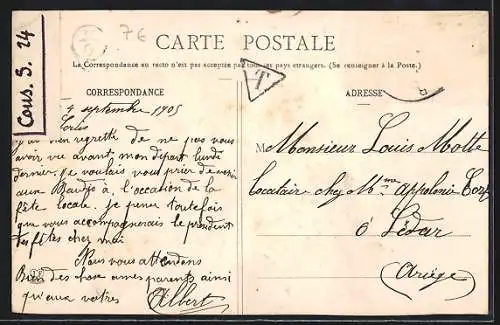 Cous. S. 24
76
CARTE POSTALE
La Correspondance au recto n'est pas acceptée par tous les pays étrangers. (Se renseigner à la Poste.)
T
CORRESPONDANCE
ADRESSE
4 septembre 1905
bien regretté de ne pas vous
avoir vu avant mon départ lundi
dernier. je voulais vous prier de venir
aux à l'occasion de la
fête locale. je pense toutefois
que vous accompagnerais le président
des fêtes chez moi
Nous vous attendons
Bien des chose a mes parents ainsi
qu'aux votres Albert
M Monsieur Louis Motte
Locataire chez Mme Appolonie
à Lédar
Ariège